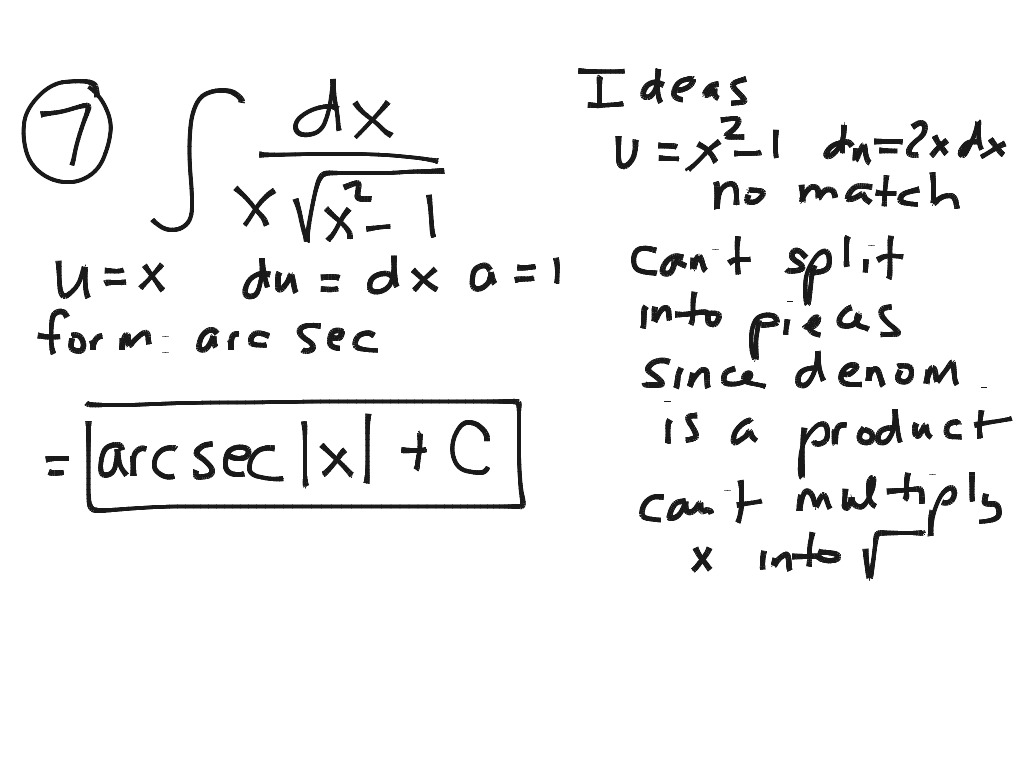 7 ∫ dx / x√x²-1
u = x du = dx a = 1
form: arc sec
= arcsec |x| + C
Ideas
u = x²-1 du = 2x dx
no match
can't split
into pieces
since denom
is a product
can't multiply
x into √